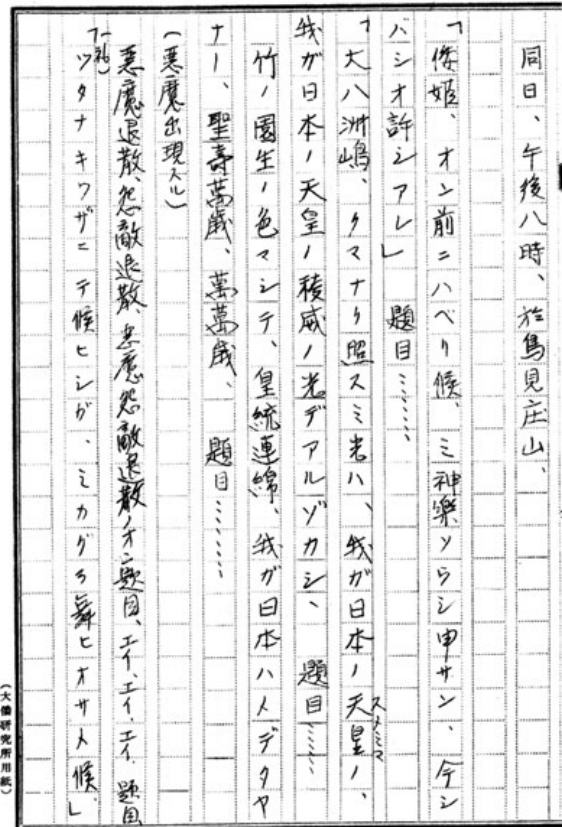 同日、午後八時、於鳥見庄山、
「倭姫、オン前ニハベリ候、ミ神樂ソウシ申サン、今シ
バシオ許シアレ」 題目……
「大八洲嶋、クマナク照スミ光ハ、我が日本ノ天皇ノ、
スメミマ
我が日本ノ天皇ノ稜威ノ光デアルゾカシ、 題目……
竹ノ園生ノ色マシテ、皇統連綿、我が日本ハメデタヤ
ナー、聖壽萬歳、萬萬歳、 題目……
(悪魔出現スル)
悪魔退散、怨敵退散、悪魔怨敵退散ノオン題目、エイ、エイ、エイ、題目
「ツタナキワザニテ候ヒシガ、ミカグラ舞ヒオサメ候」
(大倭研究所用紙)